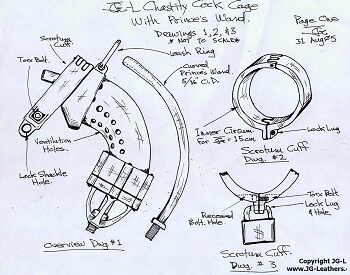 JG-L Chastity Cock Cage
With Prince's Wand.
Drawings 1, 2, & 3
* NOT TO SCALE *
Page One
31 Aug
Scrotum
Cuff.
Leash Ring
Torx Bolt.
Curved
Prince's Wand.
5/16" O.D.
Inner Circum
for = 15cm
Lock Lug
Scrotum Cuff
Dwg. #2
Ventilation
Holes.
Lock Shackle
Hole.
Recessed
Bolt Hole.
Torx Bolt
Lock Lug
& Hole.
Overview Dwg #1
Scrotum Cuff.
Dwg. # 3
Copyright JG-L
www.JG-Leathers.